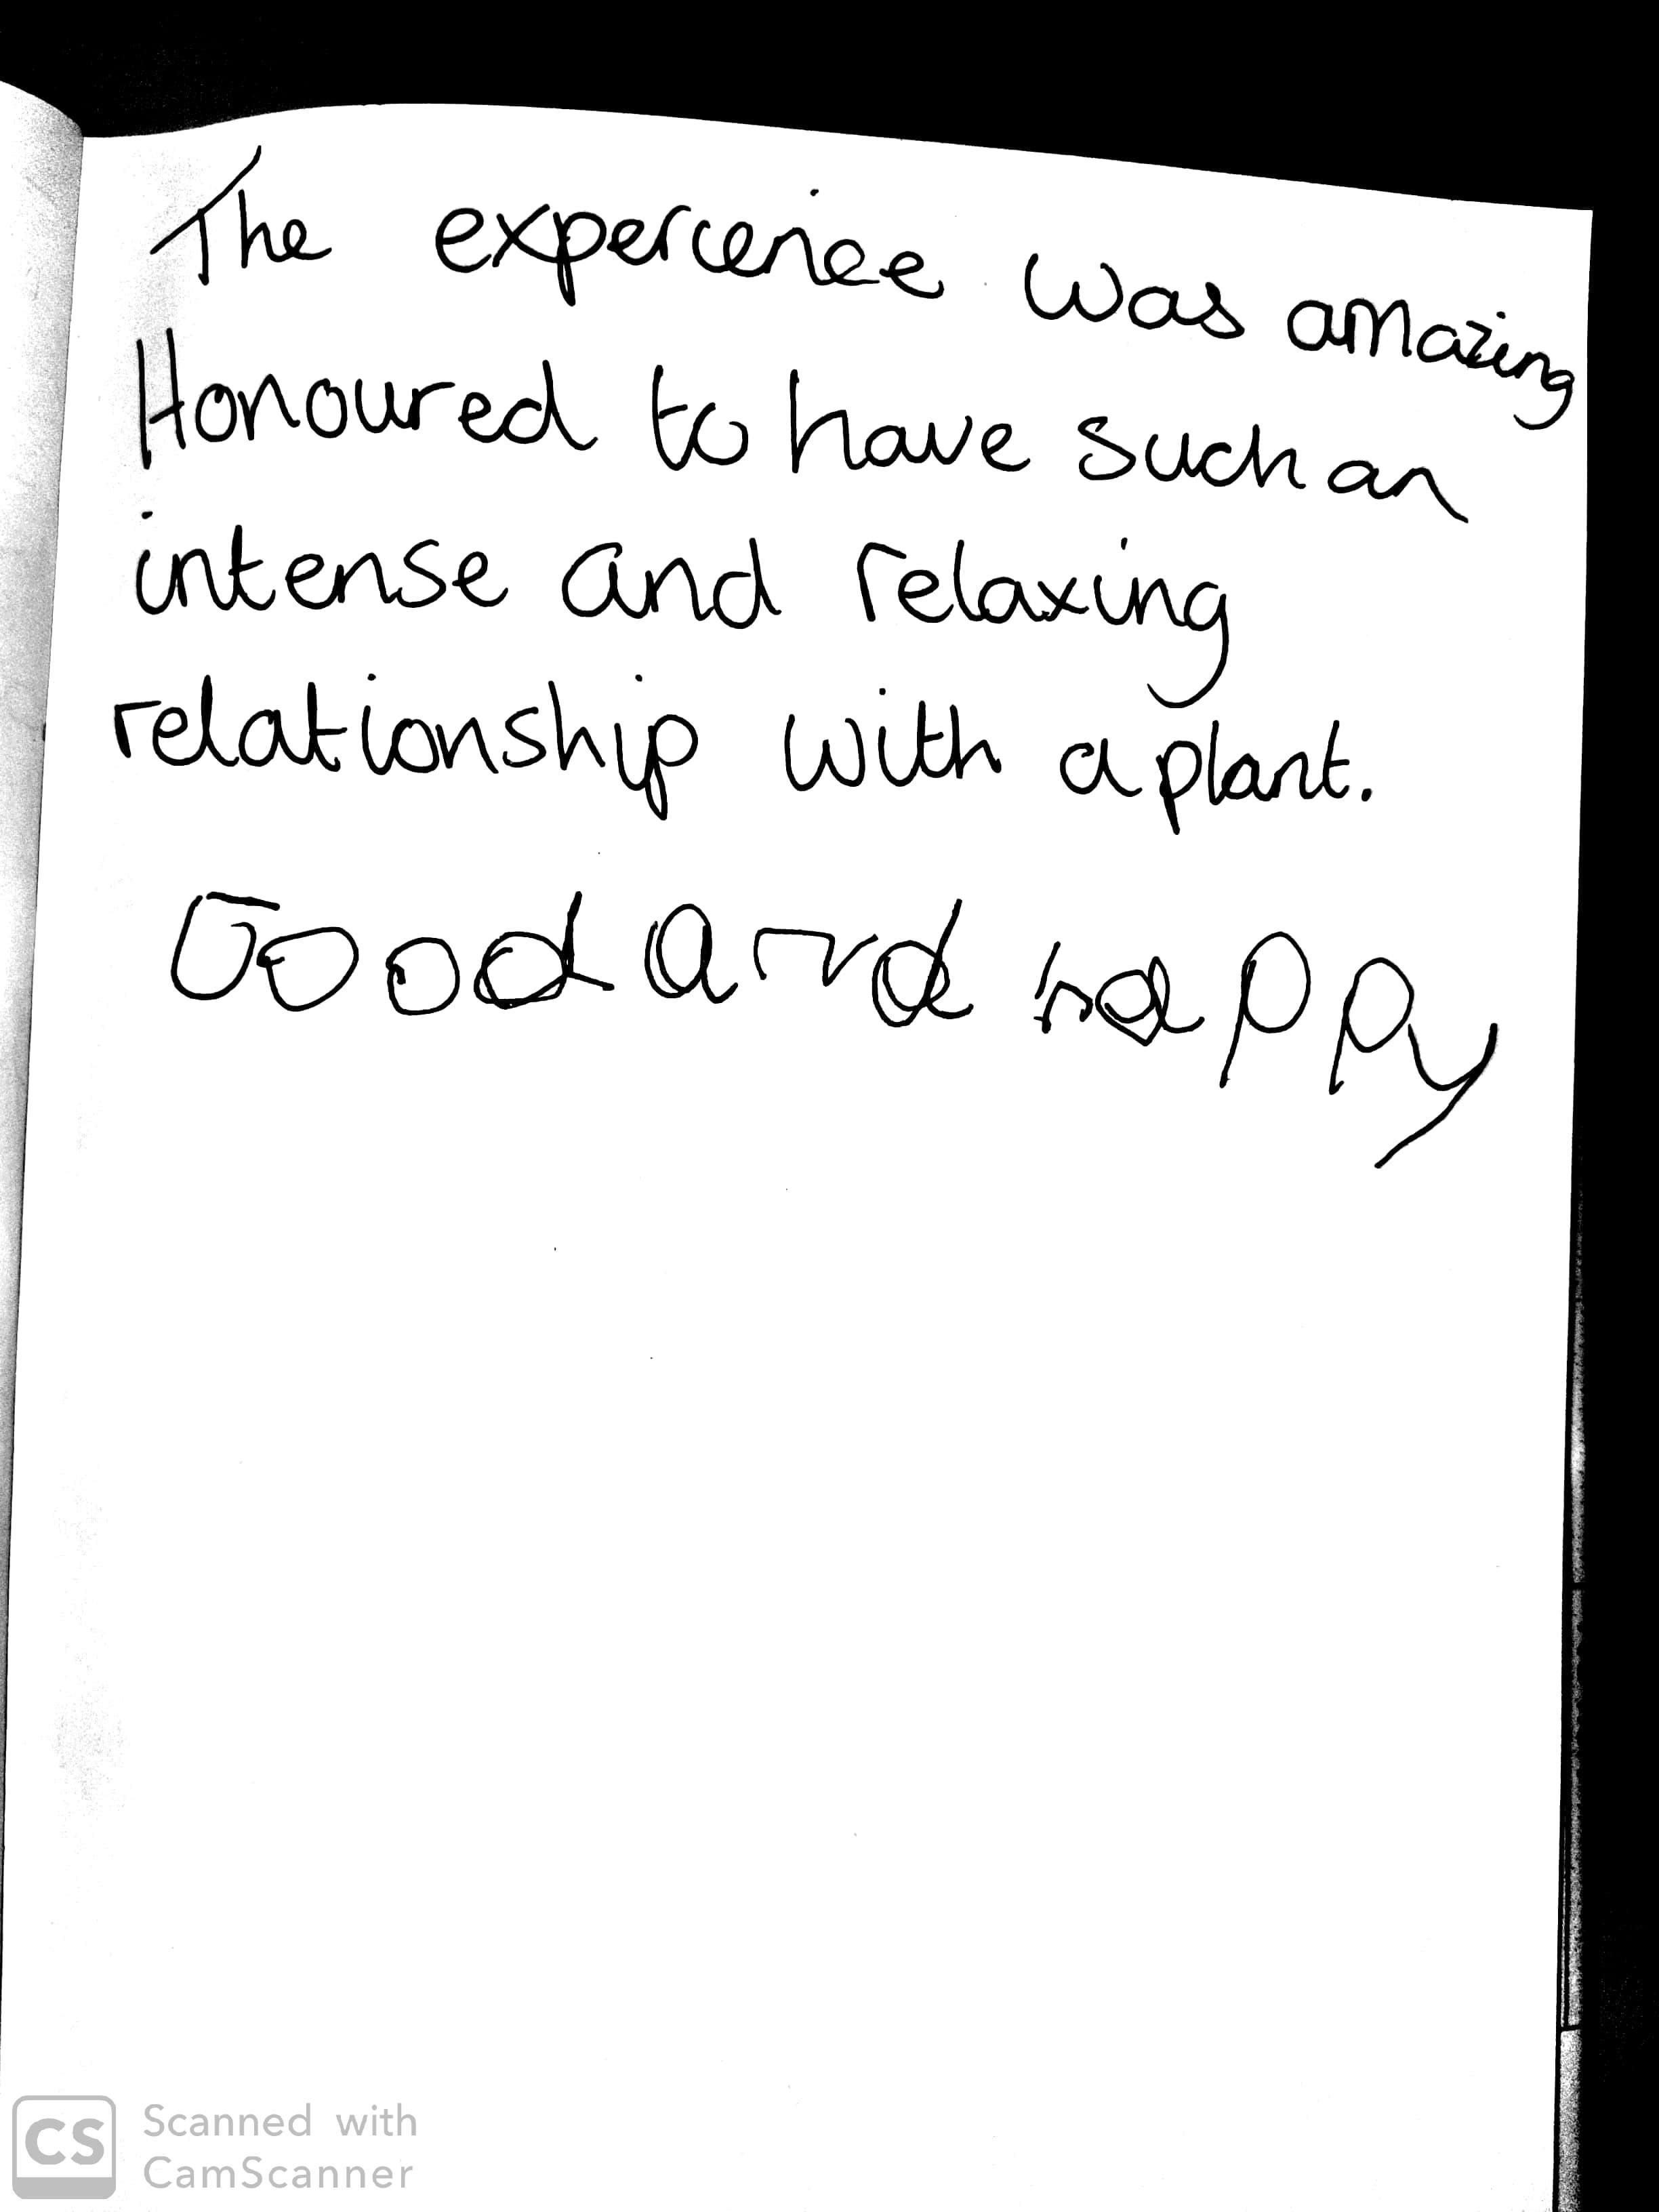 The experience was amazing
Honoured to have such an
intense and relaxing
relationship with a plant.
Good and happy
CS
Scanned with
CamScanner